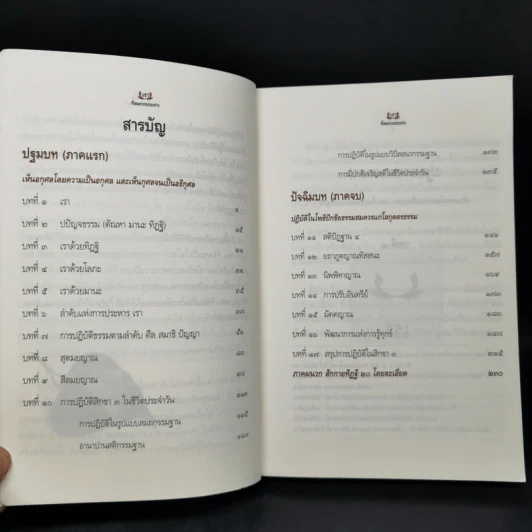 สารบัญ
ปฐมบท (ภาคแรก)
เห็นอกุศลโดยความเป็นอกุศล และเห็นกุศลจนเป็นอธิกุศล
บทที่ ๑ เรา ๑
บทที่ ๒ ปปัญจธรรม (ตัณหา มานะ ทิฏฐิ) ๑๕
บทที่ ๓ เราด้วยทิฏฐิ ๒๑
บทที่ ๔ เราด้วยโลภะ ๓๑
บทที่ ๕ เราด้วยมานะ ๓๕
บทที่ ๖ ลำดับแห่งการประหาร เรา ๓๗
บทที่ ๗ การปฏิบัติธรรมตามลำดับ ศีล สมาธิ ปัญญา ๕๑
บทที่ ๘ สุตมยญาณ ๘๓
บทที่ ๙ สีลมยญาณ
บทที่ ๑๐ การปฏิบัติสิกขา ๓ ในชีวิตประจำวัน ๑๑๓
การปฏิบัติในรูปแบบสมถกรรมฐาน
อานาปานสติกรรมฐาน ๑๑๗
การปฏิบัติในรูปแบบวิปัสสนากรรมฐาน ๑๓๒
การมีปกติเจริญสติในชีวิตประจำวัน ๑๓๕
ปัจฉิมบท (ภาคจบ)
ปฏิบัติในโพธิปักขิยธรรมสมควรแก่โลกุตตรธรรม
บทที่ ๑๑ สติปัฏฐาน ๔ ๑๔๑
บทที่ ๑๒ ยถาภูตญาณทัสสนะ ๑๕๗
บทที่ ๑๓ นิพพิทาญาณ ๑๖๑
บทที่ ๑๔ การปรับอินทรีย์ ๑๗๓
บทที่ ๑๕ มัคคญาณ ๑๘๑
บทที่ ๑๖ พัฒนาการแห่งการรู้ทุกข์ ๑๘๗
บทที่ ๑๗ สรุปการปฏิบัติในสิกขา ๓ ๒๑๕
ภาคผนวก สักกายทิฏฐิ ๒๐ โดยละเอียด ๒๓๐